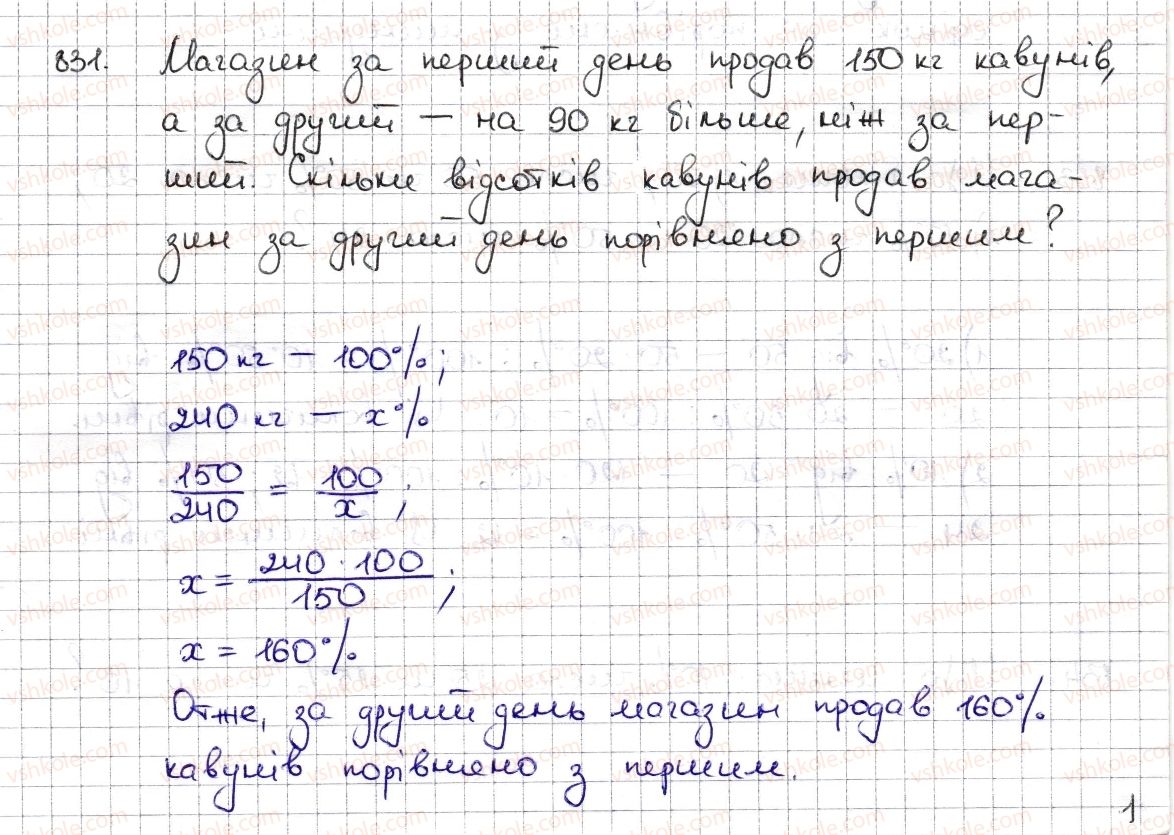 831. Магазин за перший день продав 150 кг кавунів,
а за другий — на 90 кг більше, ніж за пер-
ший. Скільки відсотків кавунів продав мага-
зин за другий день порівняно з першим?
150 кг — 100%;
240 кг — x%
150/240 = 100/x;
x = 240 · 100/150;
x = 160%
Отже, за другий день магазин продав 160%
кавунів порівняно з першим.
1